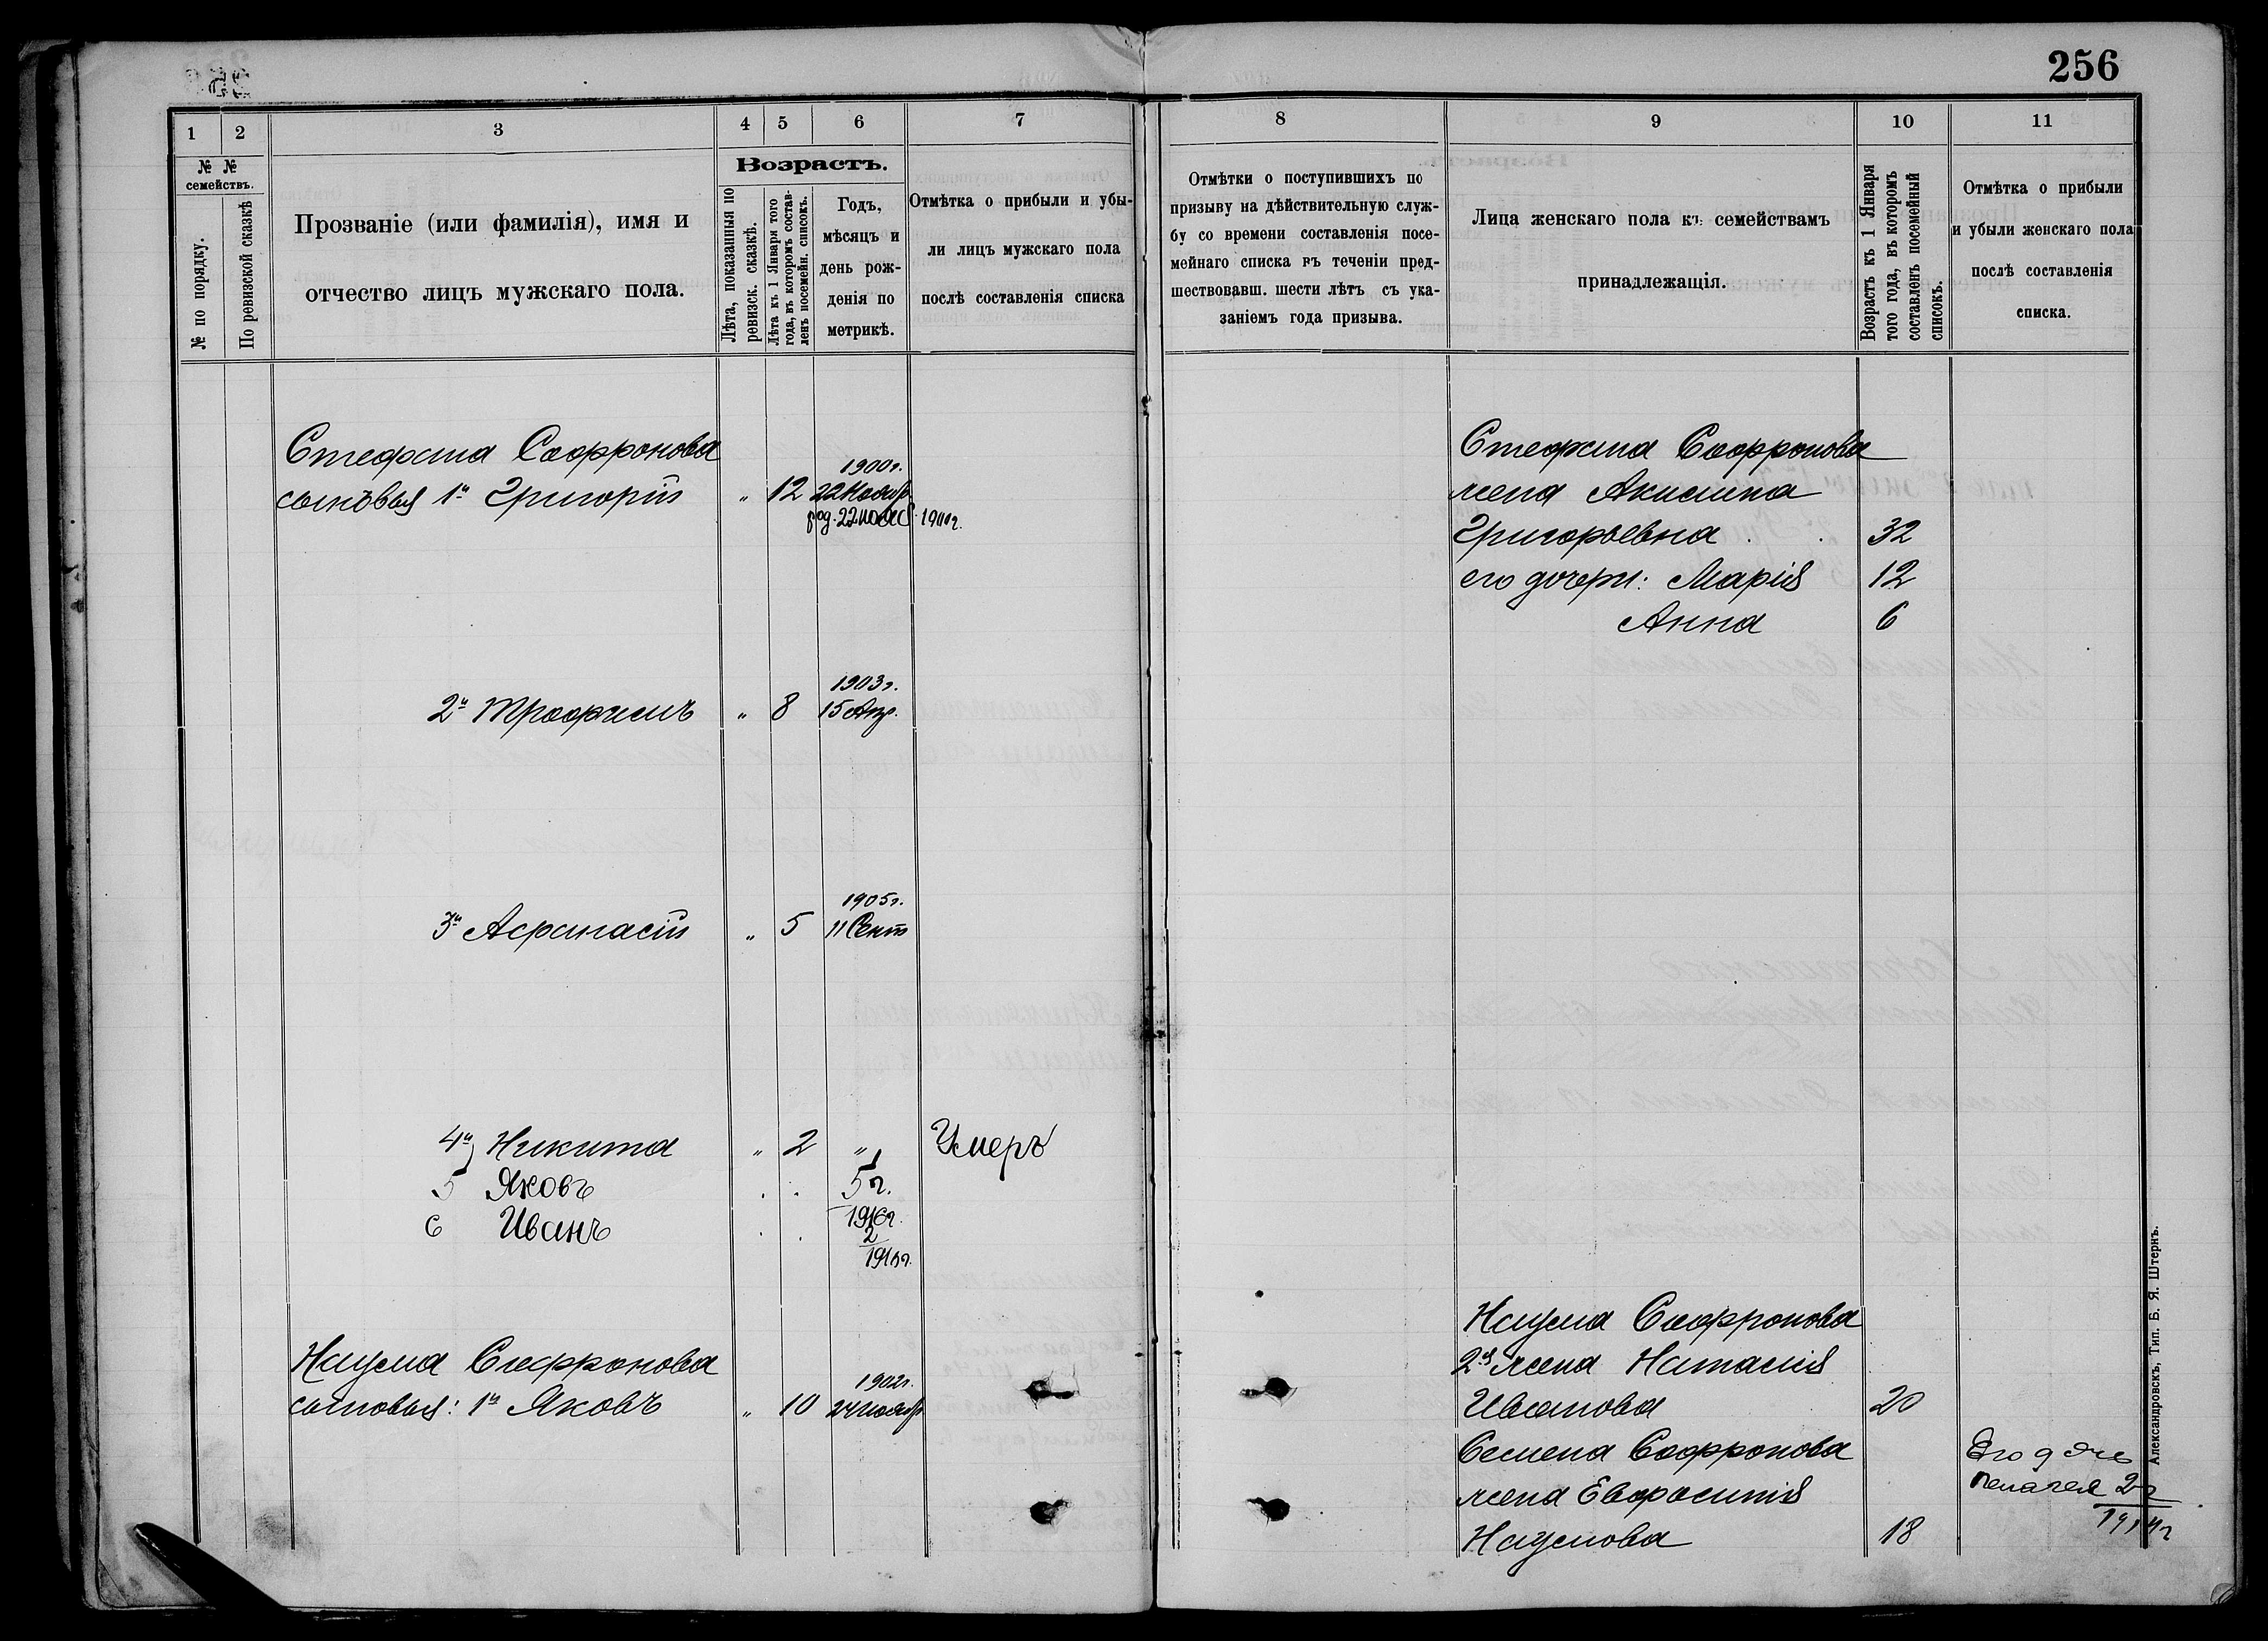 256
1
2
3
4
5
6
7
8
9
10
11
№ №
семействъ.
№ по порядку.
По ревизской сказкѣ
Прозваніе (или фамилія), имя и
отчество лицъ мужскаго пола.
Возрастъ.
Лѣта, показанныя по
ревизск. сказкѣ.
Лѣта къ 1 Января того
года, въ которомъ состав-
ленъ посемейн. списокъ.
Годъ,
мѣсяцъ и
день рож-
денія по
метрикѣ.
Отмѣтка о прибыли и убы-
ли лицъ мужскаго пола
послѣ составленія списка
Отмѣтки о поступившихъ по
призыву на дѣйствительную служ-
бу со времени составленія посе-
мейнаго списка въ теченіи пред-
шествовавш. шести лѣтъ съ ука-
заніемъ года призыва.
Лица женскаго пола къ семействамъ
принадлежащія.
Возрастъ къ 1 Января
того года, въ которомъ
составленъ посемейный
списокъ.
Отмѣтка о прибыли
и убыли женскаго пола
послѣ составленія
списка.
Стефана Софронова
сыновья 1й Григорій " 12 1900г. 22 Нояб
род. 22 нояб. 1900г.
2й Трофимъ " 8 1903г. 15 Апр.
3й Афанасій " 5 1905г. 11 Сент
4й Никита " 2 " Умеръ
5 Яковъ . . 5 г.
1916г.
6 Иванъ . . 2
1916г.
Наума Софронова
сыновья: 1й Яковъ " 10 1902г. 24 нояб
Стефана Софронова
жена Акилина
Григорьевна 32
его дочери: Марія 12
Анна 6
Наума Софронова
2я жена Наталія
Иванова 20
Семена Софронова
жена Евфросинія
Наумова 18
Его дочь
Пелагея 2 г
1914г
Александровскъ, Тип. Б. Я. Штернъ.